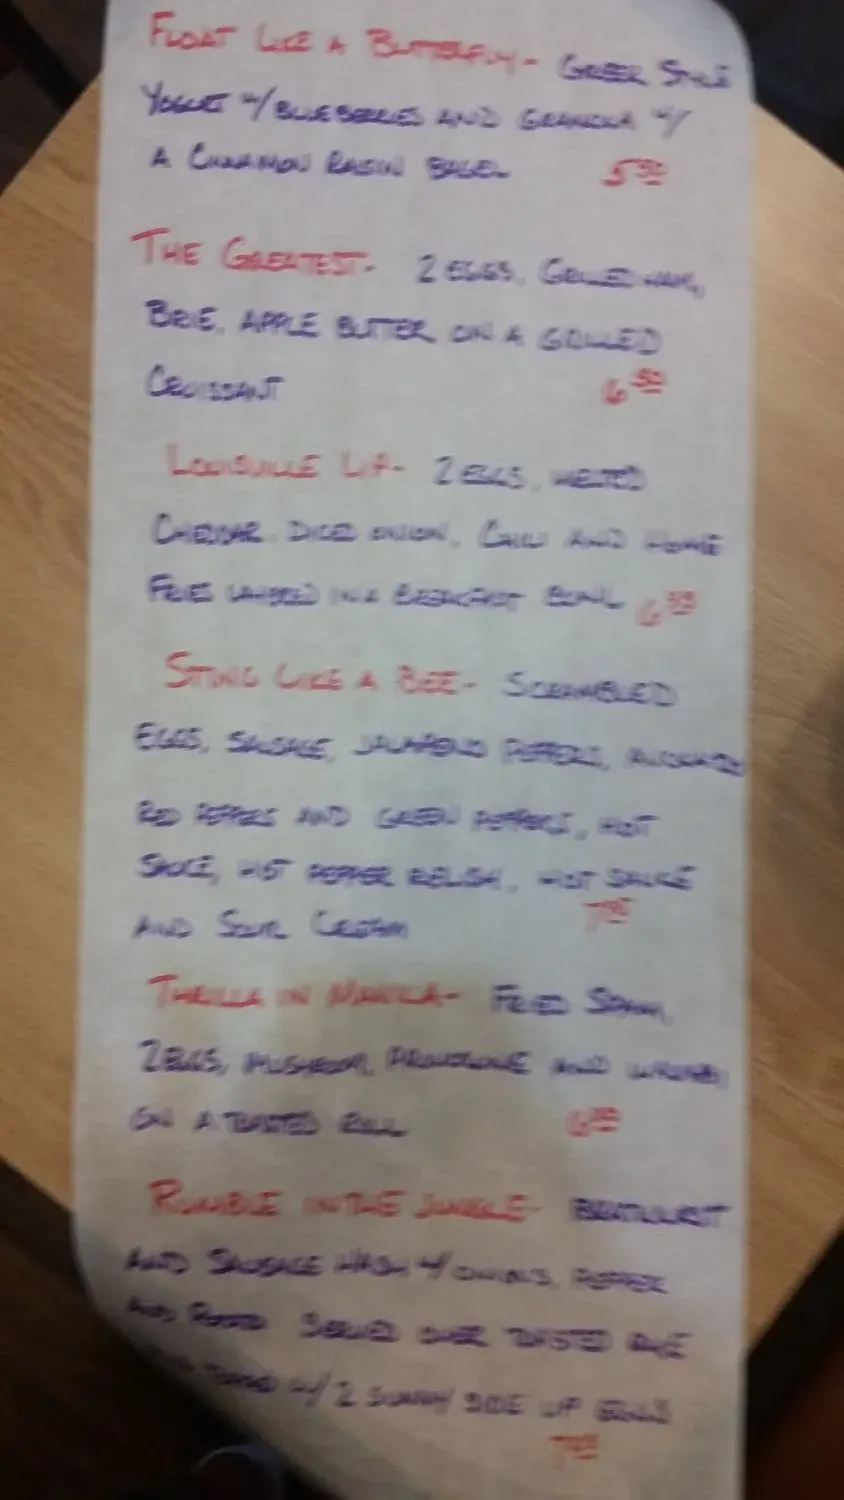 FLOAT LIKE A BUTTERFLY- GREEK STYLE
YOGURT W/BLUEBERRIES AND GRANOLA W/
A CINNAMON RAISIN BAGEL 5.50
THE GREATEST- 2 EGGS, GRILLED HAM,
BRIE, APPLE BUTTER ON A GRILLED
CROISSANT 6.50
LOUISVILLE LIP- 2 EGGS, MELTED
CHEDDAR, DICED ONION, CHILI AND HOME
FRIES LAYERED IN A BREAKFAST BOWL 6
STING LIKE A BEE- SCRAMBLED
EGGS, SAUSAGE, JALAPENO PEPPERS, AVOCADO
RED PEPPERS AND GREEN PEPPERS, HOT
SAUCE, HOT PEPPER RELISH, HOT SAUCE
AND SOUR CREAM 7
THRILLA IN MANILA- FRIED SPAM,
2 EGGS, MUSHROOM, PROVOLONE AND
ON A TOASTED ROLL 6
RUMBLE IN THE JUNGLE- BRATWURST
AND SAUSAGE HASH W/ONIONS, PEPPER
AND SERVED OVER TOASTED RYE
W/2 SUNNY SIDE UP EGGS
7